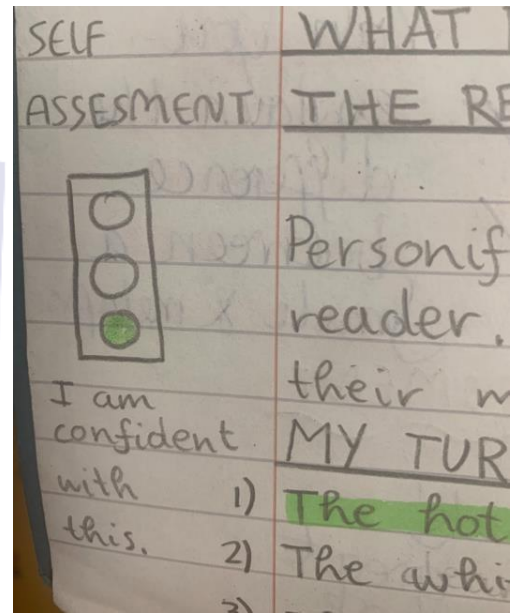 SELF
ASSESMENT
I am
confident
with
this.
WHAT
THE RE
Personif
reader.
their
MY TUR
1) The hot
2) The whi
3)